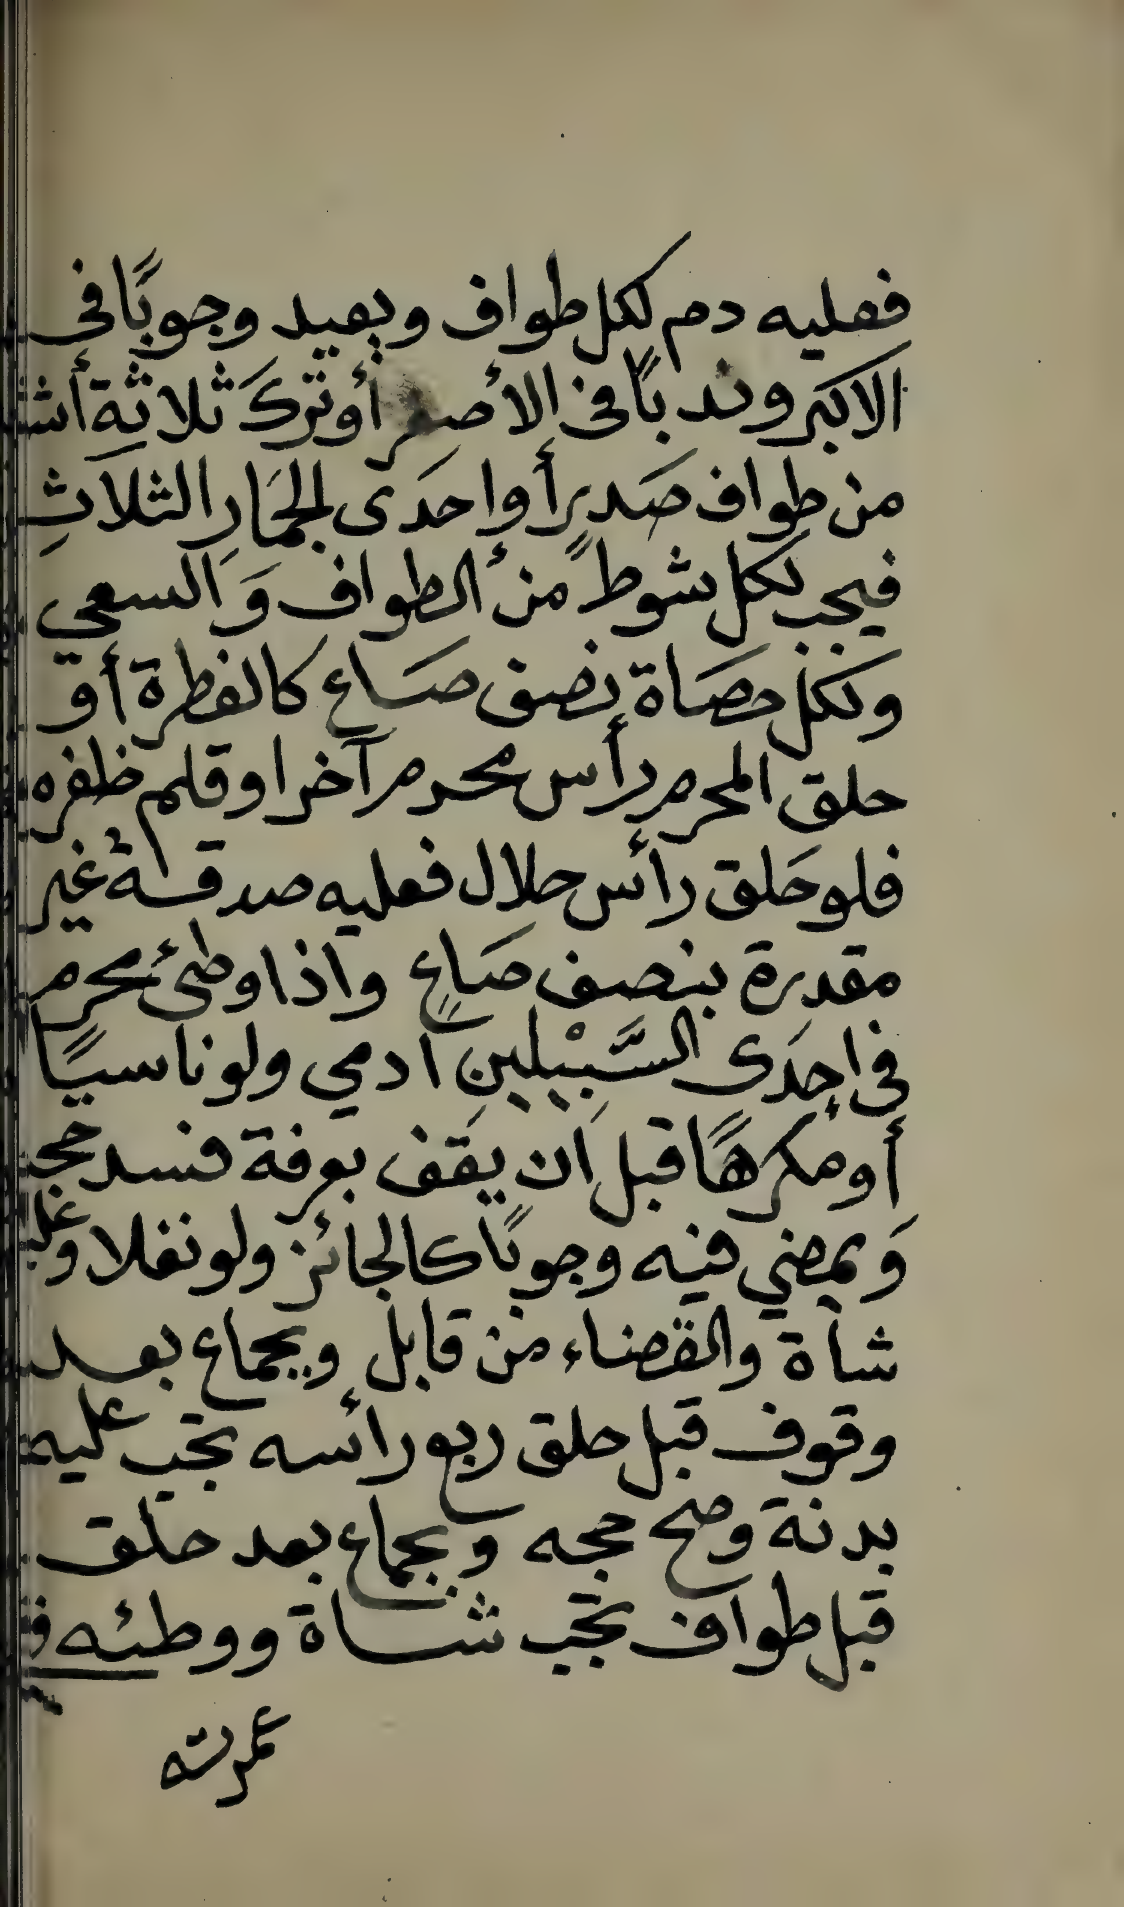 فعليه دم لكل طواف ويعيد وجوبًا فى
الاكبر وندبًا فى الأصغر أو ترك ثلاثة
من طواف صَدرٍ أو احدَى الجِمَارِ الثلاثِ
فيجب لكل شوطٍ من الطواف وَالسعي
ولكل حصَاة نصف صَاع كالفطرة أو
حلق المحرم رأس محرم آخر او قلم ظفره
فلو حَلق رأس حلال فعليه صدقةٌ غير
مقدرة بنصف صَاعٍ واذا وطئ محرم
فى احِدَى السَّبِيْلينِ آدمي ولو ناسيًا
أو مكرهًا قبل ان يقف بعرفة فسد حجه
وَيمضي فيه وجوبًا كالجائز ولو نفلا وعليه
شاة والقضاء من قابل وبجماع بعد
وقوف قبل حلق ربع رأسه تجب عليه
بدنة وصح حجه وبجماع بعد حلق
قبل طواف تجب شاة ووطئه
عمرته